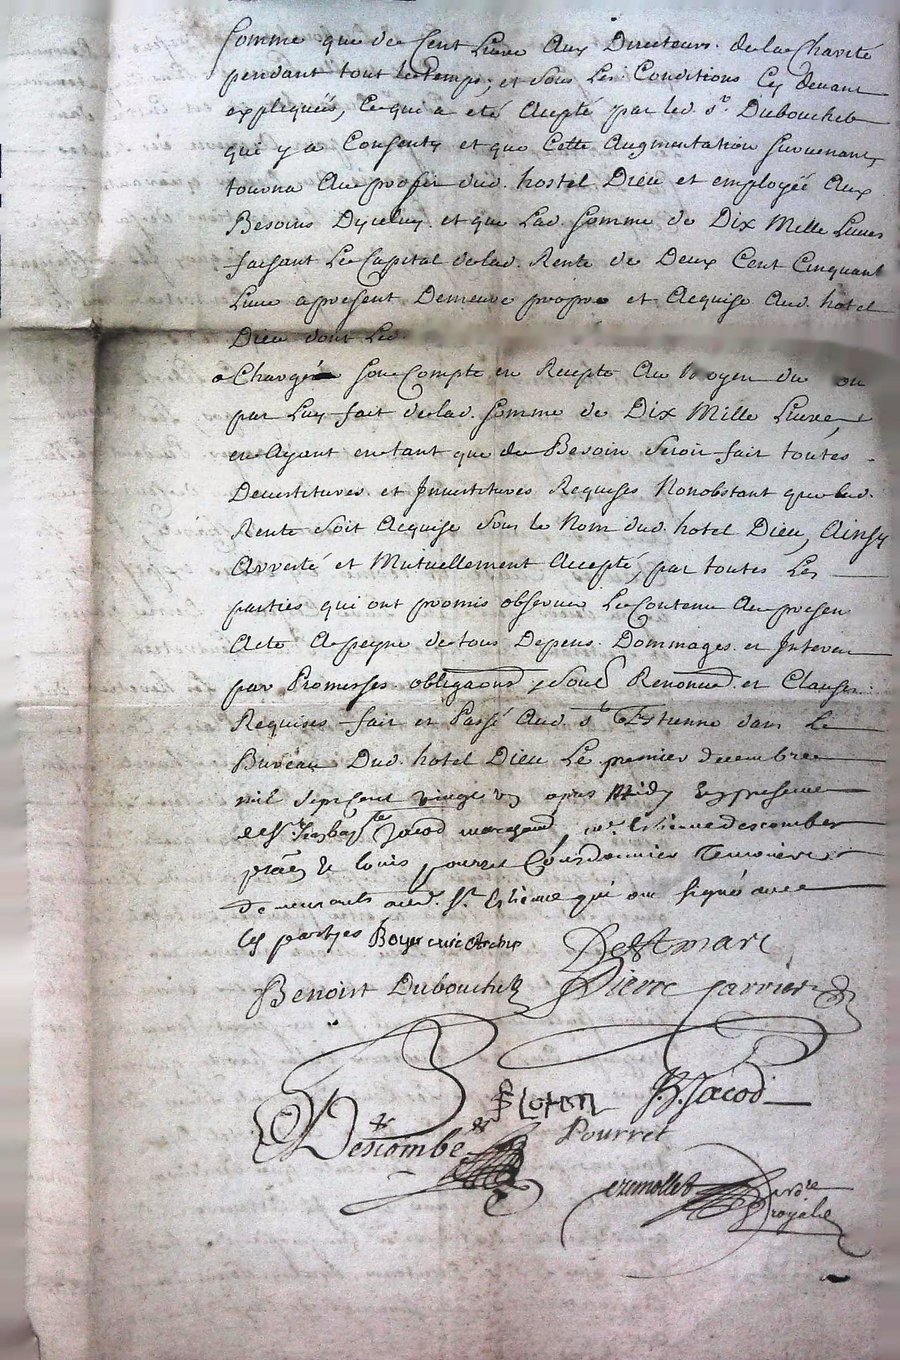 Somme que de Cent Livre Aux Directeurs de la Charité
pendant tout le temps, et sous Les Conditions Cy devant
expliquées, Ce qui a eté Acepté par led. Sr. Dubouchet
qui y a Consenty et que Cette Augmentation survenant
tourna Au profit dud. hostel Dieu et employée Aux
Besoins Dyceluy et que Lad. Somme de Dix Mille Livres
faisant Le Capital de lad. Rente de Deux Cent Cinquant
Livre apresent Demeure propre et Acquise Aud. hotel
Dieu dont Led.
a Chargée son Compte en Recepte Au Moyen du
par Luy fait de lad. Somme de Dix Mille Livre,
en Ayant en tant que de Besoin Seroit fait toutes
Devestitures et Jnvestitures Requises Nonobstant que lad.
Rente Soit Acquise Sous le Nom dud. hotel Dieu, Ainsy
Arresté et Mutuellement Accepté, par toutes Les
parties qui ont promis observer Le Contenu Au presen
Acte A peyne de tous Depens Dommages et Interen
par Promesses obligaons, Renoncd. et Clauses
Requises fait et Passé Aud. St. Estienne dans Le
Bureau Dud. hotel Dieu Le premier decembre
mil sept cent vingt un apres Midy En presence
de Sr. Jean bapte Jacod marchand, Mr. Estienne descombes
praen & Louis pourret Courdonnier
demeurants aud. St. Estienne qui ont signé avec
les partyes Boyer curé Archip
DeStmarc
Benoist Dubouchet Pierre Carrier
Floton JB. Jacod
Descombes Pourret
cremollet no.re
royale